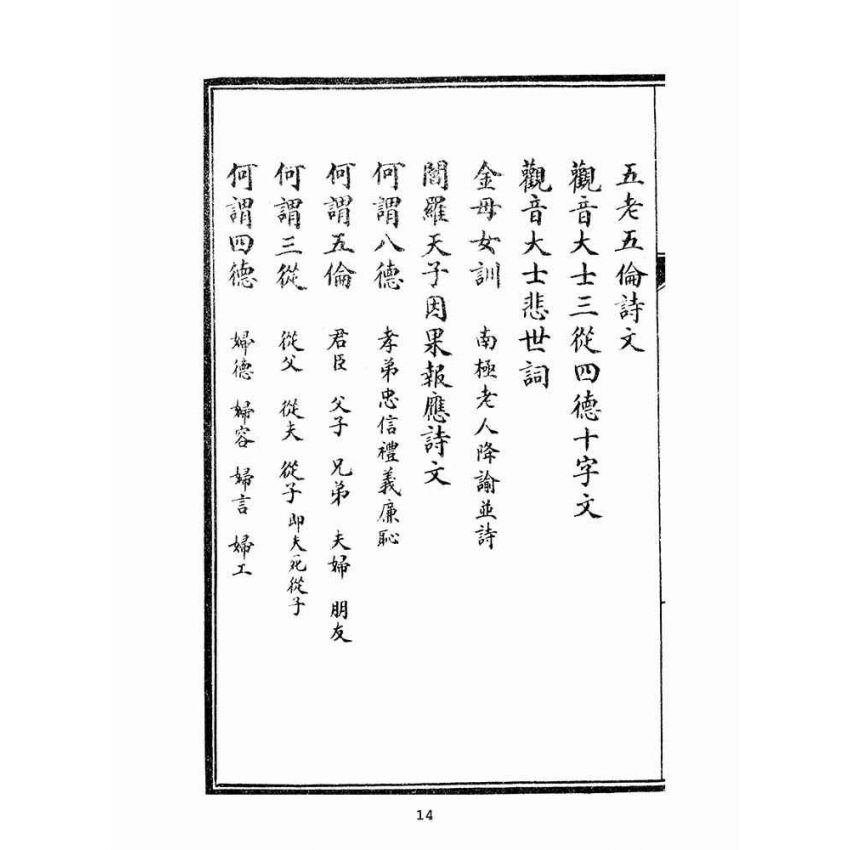 五老五倫詩文
觀音大士三從四德十字文
觀音大士悲世詞
金母女訓 南極老人降諭並詩
閻羅天子因果報應詩文
何謂八德 孝弟忠信禮義廉恥
何謂五倫 君臣 父子 兄弟 夫婦 朋友
何謂三從 從父 從夫 從子 即夫死從子
何謂四德 婦德 婦容 婦言 婦工
14